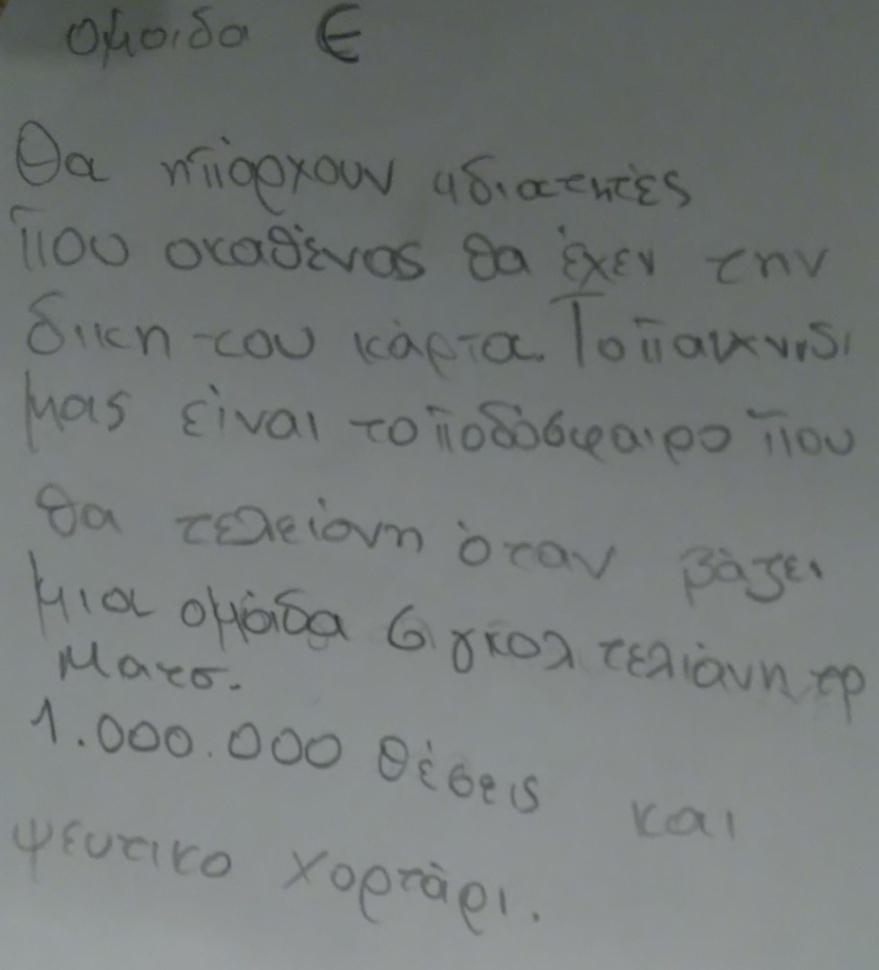 ομοιδα Ε
Θα ηπιάρχουν αδιατητές
που οκαθένας θα έχεν την
δικη του κάρτα. Τοπαιχνιδι
μας είναι τοποδόσφαιρο που
θα τελείονη όταν βάζει
μια ομάδα 6 γκολ τελιόνη το
ματσ.
1.000.000 θέσεις και
ψευτικο χορτάρι.